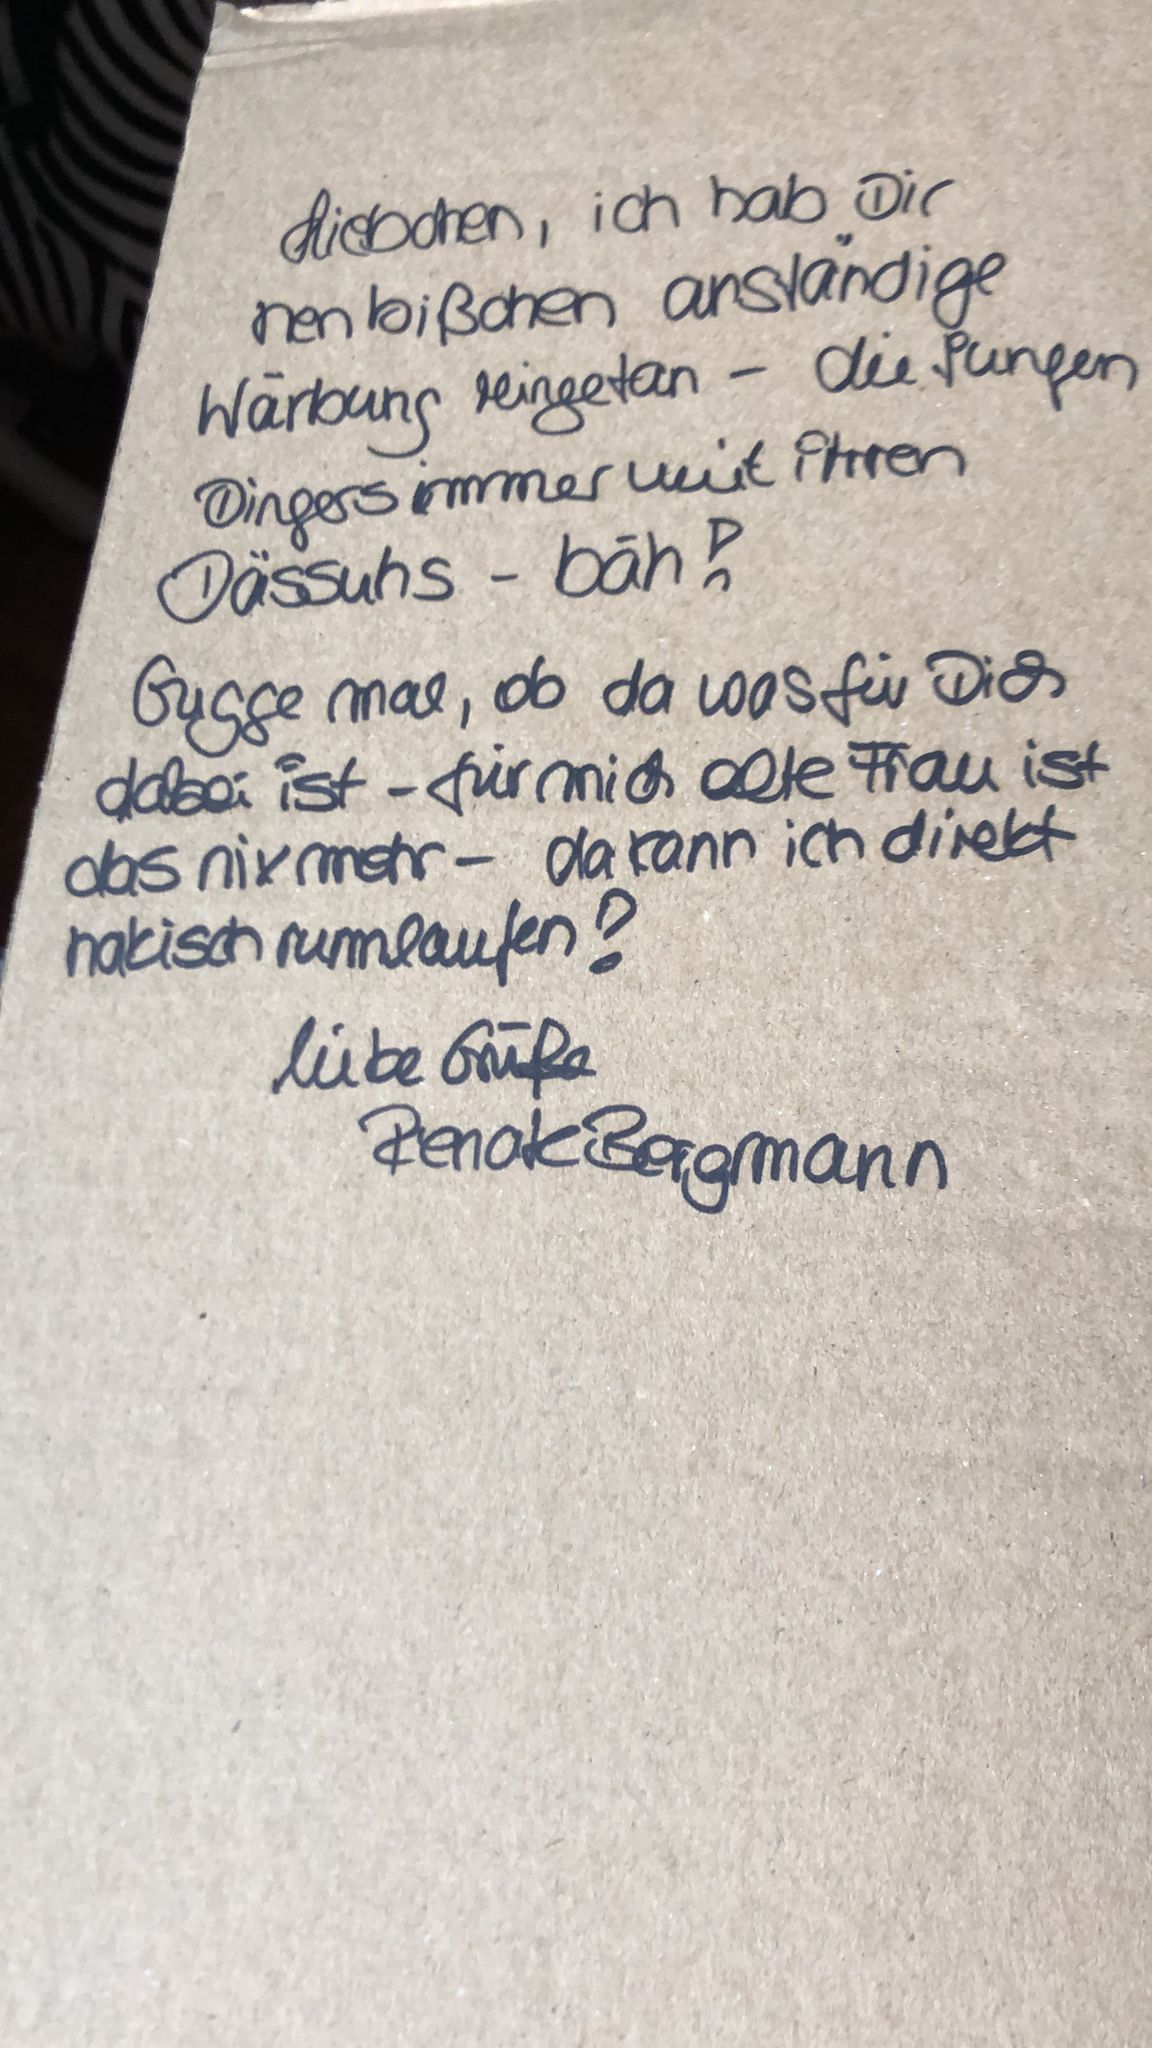 Liebchen, ich hab Dir
nen bißchen anständige
Wärbung reingetan - die jungen
Dingers immer mit ihren
Dässuhs - bäh!
Gugge mal, ob da was für Dich
dabei ist - für mich alte Frau ist
das nix mehr - da kann ich direkt
nakisch rumlaufen!
liebe Grüße
Renate Bergmann